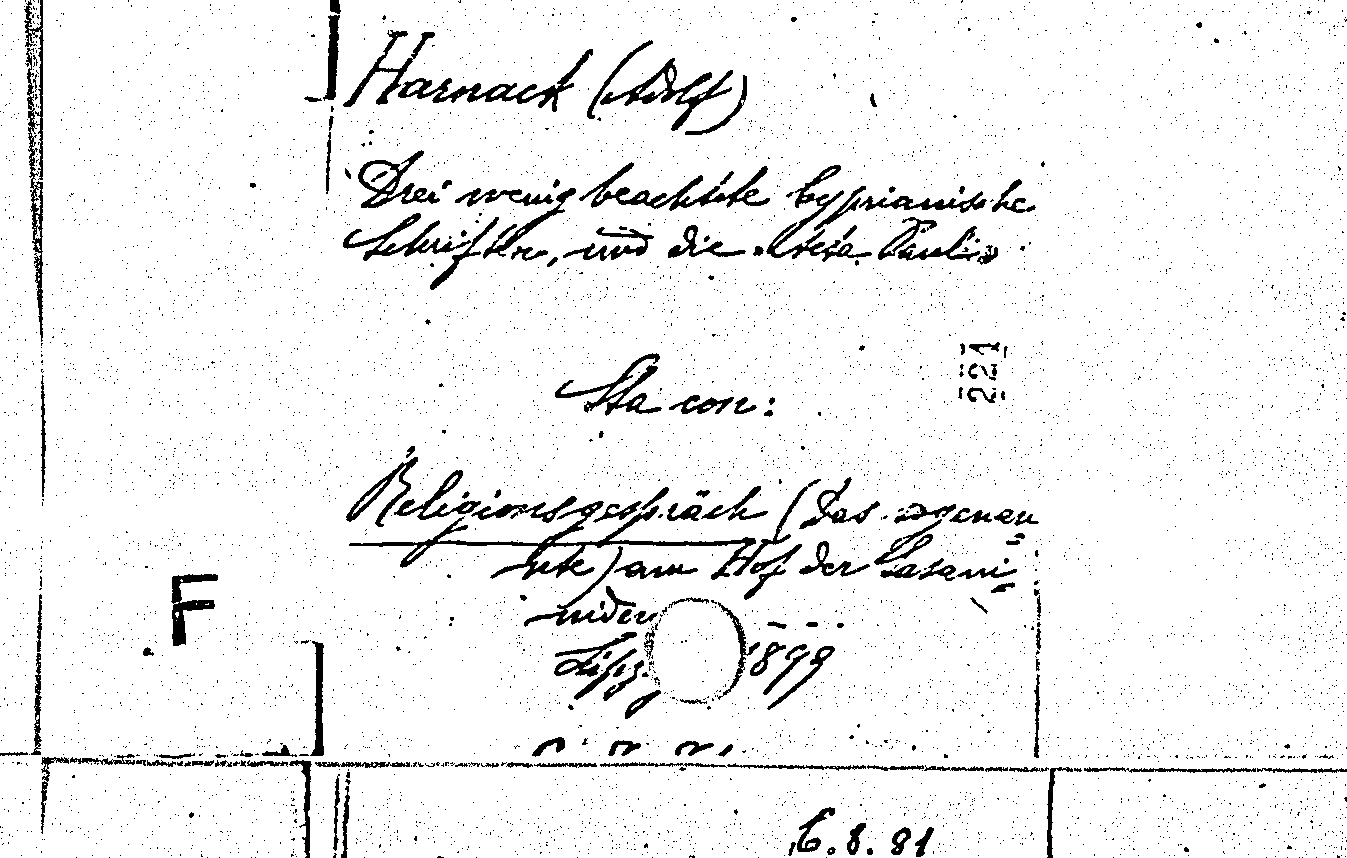 Harnack (Adolf)
Drei wenig beachtete Cyprianische
Schriften, und die «Acta Pauli»
221
Sta con:
Religionsgespräch (Das sogenan=
nte) am Hof der Sasani=
niden
Leipz. 1899
F
6.8.81